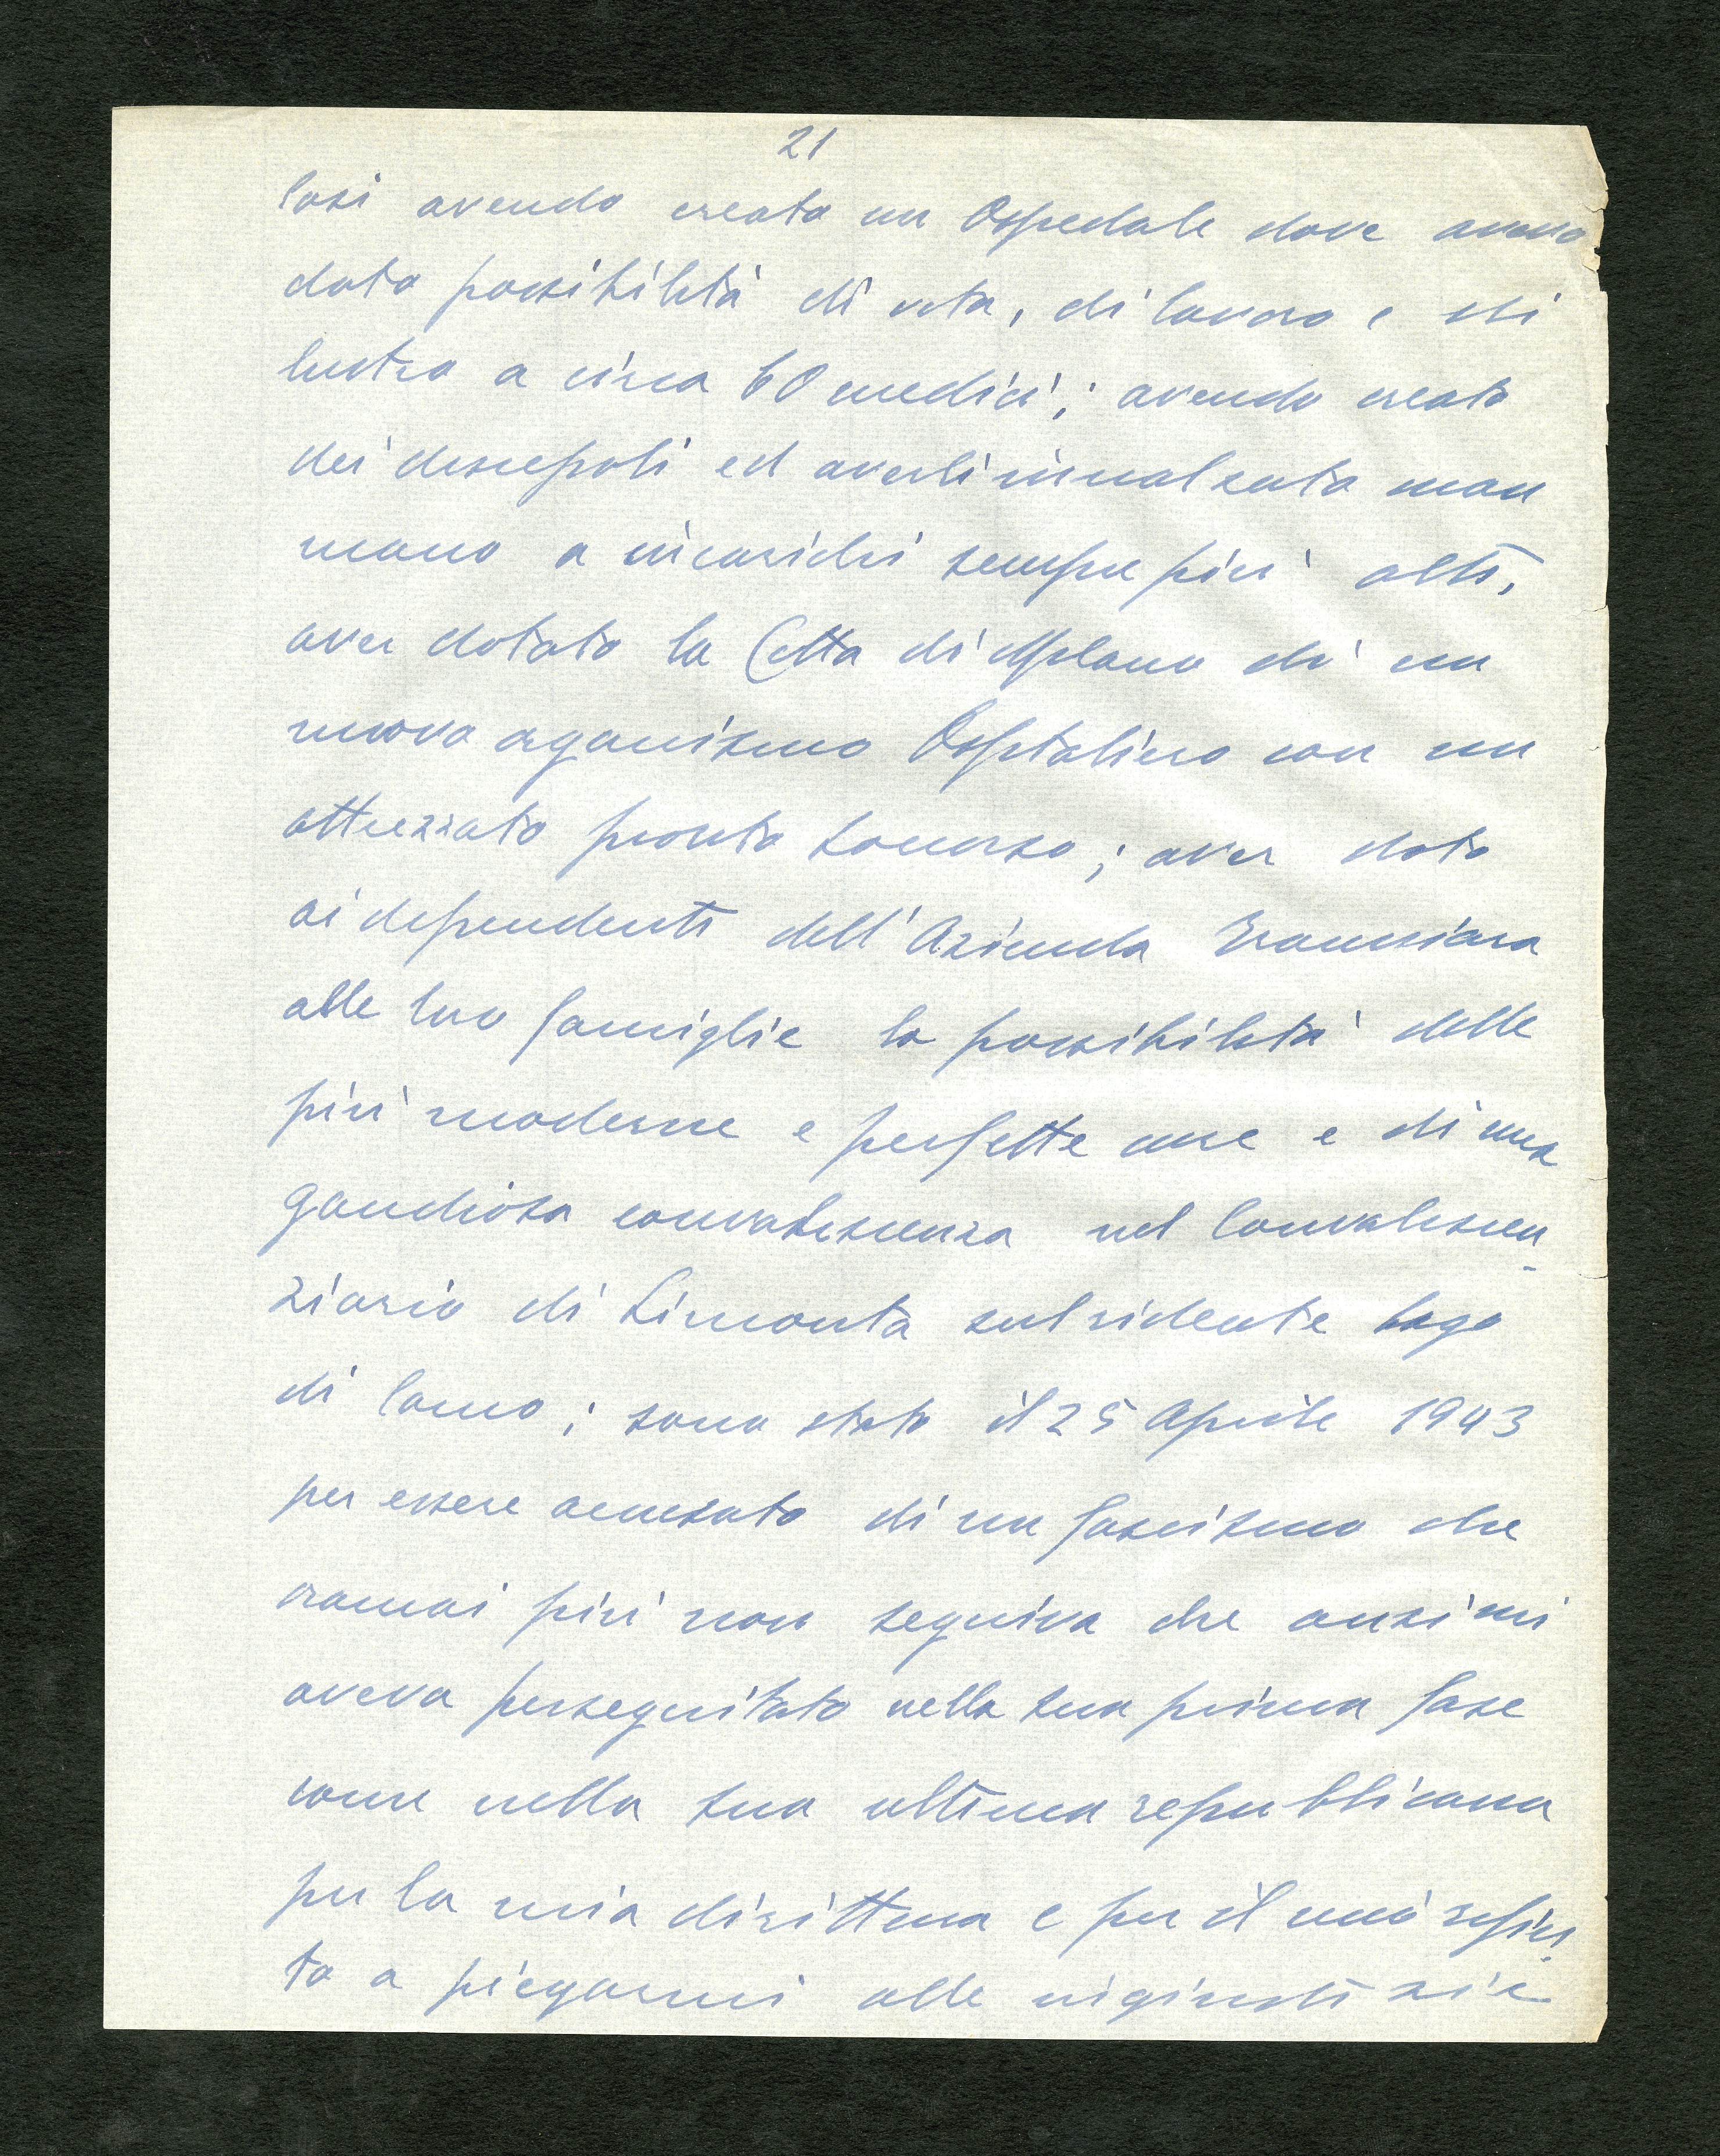 21
Così avendo creato un Ospedale dove avevo
dato possibilità di vita, di lavoro e di
lustro a circa 60 medici; avendo creato
dei discepoli ed averli innalzato man
mano a incarichi sempre più alti,
aver dotato la Città di Milano di un
nuovo organismo Ospitaliero con un
attrezzato pronto soccorso; aver dato
ai dependenti dell'Azienda Tranviaria
alle loro famiglie la possibilità delle
più moderne e perfette cure e di una
gaudiosa convalescenza nel Convalescen-
ziario di Limonta sul ridente lago
di Como; sono stato il 25 Aprile 1943
per essere accusato di un fascismo che
oramai più non seguiva che anzi mi
aveva perseguitato nella sua prima fase
come nella sua ultima repubblicana
per la mia dirittura e per il mio rifiu-
to a piegarmi alle ingiustizie